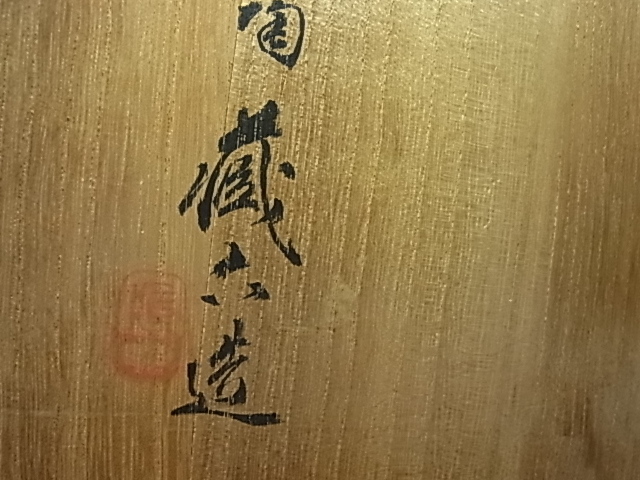 陶 藏六造